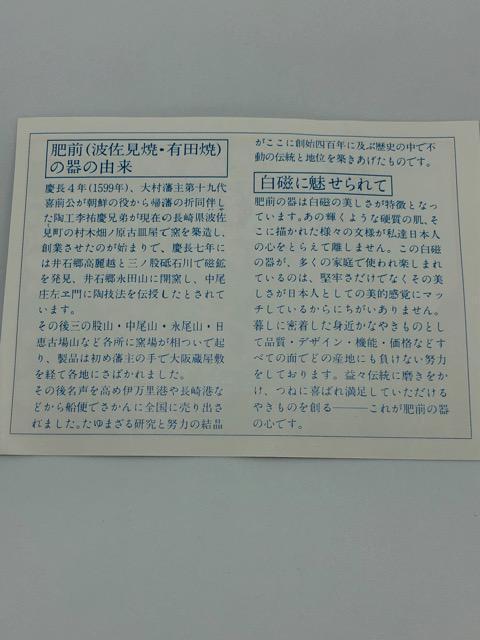 肥前(波佐見焼・有田焼)
の器の由来
慶長4年(1599年)、大村藩主第十九代
喜前公が朝鮮の役から帰藩の折同伴し
た陶工李祐慶兄弟が現在の長崎県波佐
見町の村木畑ノ原古皿屋で窯を築造し、
創業させたのが始まりで、慶長七年に
は井石郷高麗越と三ノ股砥石川で磁鉱
を発見、井石郷永田山に開窯し、中尾
庄左ヱ門に陶技法を伝授したとされて
います。
その後三の股山・中尾山・永尾山・日
恵古場山など各所に窯場が相ついで起
り、製品は初め藩主の手で大阪蔵屋敷
を経て各地にさばかれました。
その後名声を高め伊万里港や長崎港な
どから船便でさかんに全国に売り出さ
れました。たゆまざる研究と努力の結晶
がここに創始四百年に及ぶ歴史の中で不
動の伝統と地位を築きあげたものです。
白磁に魅せられて
肥前の器は白磁の美しさが特徴となっ
ています。あの輝くような硬質の肌、そ
こに描かれた様々の文様が私達日本人
の心をとらえて離しません。この白磁
の器が、多くの家庭で使われ楽しまれ
ているのは、堅牢さだけでなくその美
しさが日本人としての美的感覚にマッ
チしているからにちがいありません。
暮しに密着した身近かなやきものとし
て品質・デザイン・機能・価格などす
べての面でどの産地にも負けない努力
をしております。益々伝統に磨きをか
け、つねに喜ばれ満足していただける
やきものを創る———これが肥前の器
の心です。